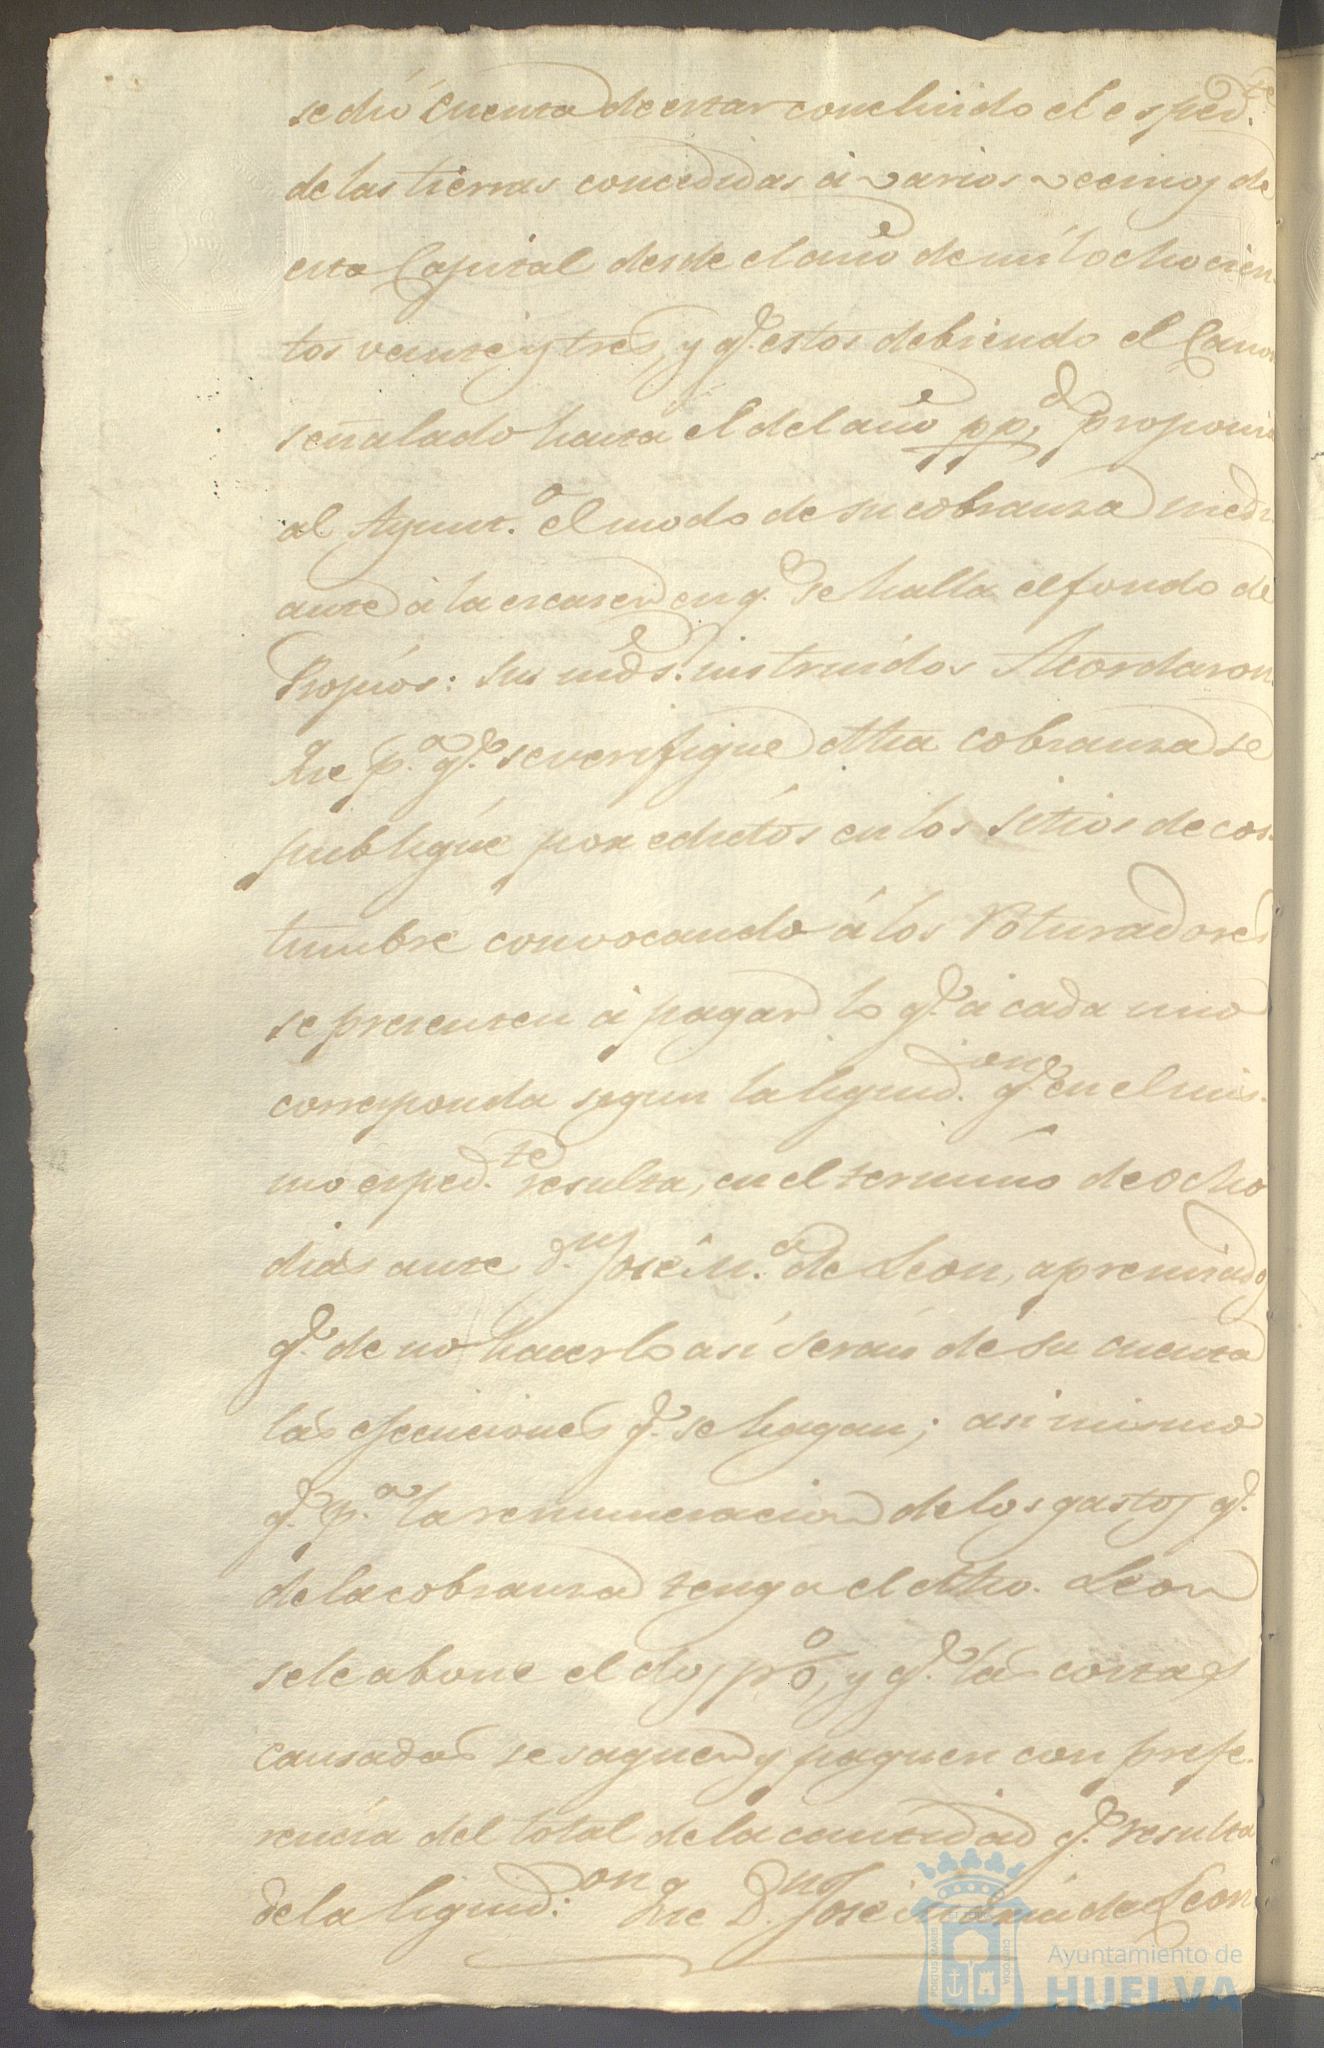 se dió Cuenta de estar concluido el esped.te
de las tierras concedidas á varios vecinos de
esta Capital desde el año de mil ochocien-
tos veinte y tres, y q.e estos debiendo el Canon
señalado hasta el del año pp.do proponia
al Ayunt.o el modo de su cobranza medi-
ante á la escases en q.e se halla el fondo de
Propios: Sus mds. instruidos Acordaron
Que p.a q.e se verifique dha cobranza se
publique por edictos en los Sitios de cos-
tumbre convocando á los Roturadores
se presenten á pagar lo q.e á cada uno
corresponda segun la liquid.on q.e en el mis-
mo esped.te resulta, en el termino de ocho
dias ante D.n José M.a de Leon, apremiados
q.e de no hacerlo asi serán de su cuenta
las ejecuciones q.e se hagan; asi mismo
q.e p.a la renumeracion de los gastos q.e
de la cobranza tenga el dho. Leon
se le abone el dos p%, y q.e las costas
causadas se saquen y paguen con prefe-
rencia del total de la cantidad q.e resulta
de la liquid.on Que D.n José Maria de Leon
Ayuntamiento de
HUELVA